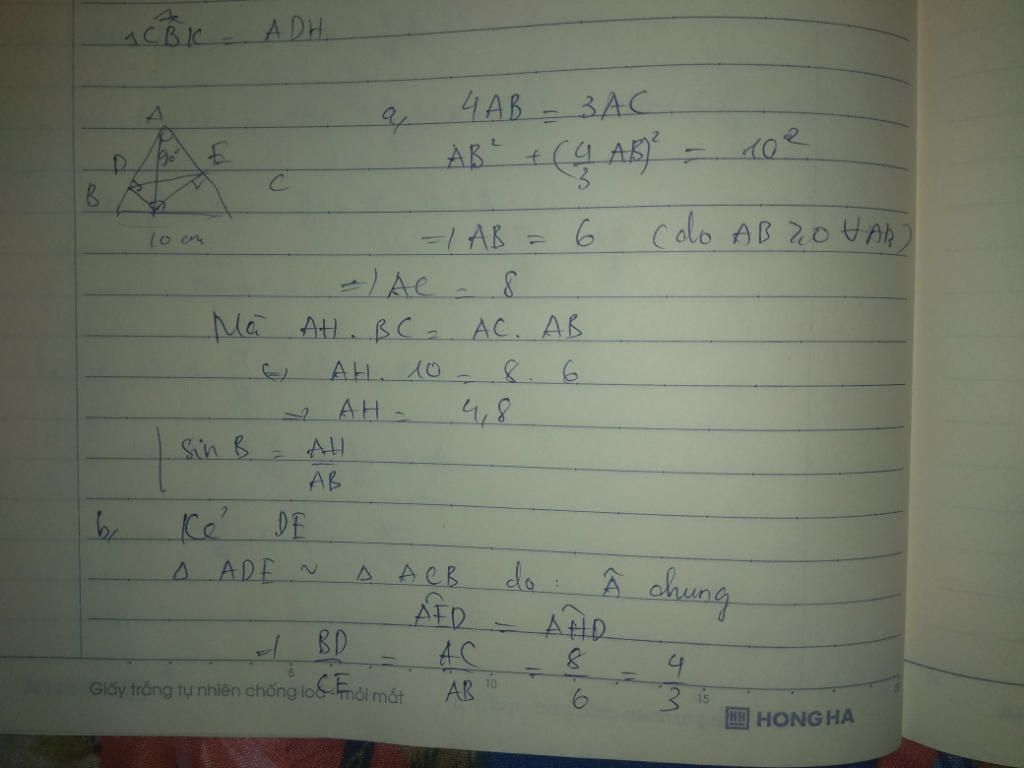 ⇒ CBK = ADH
A
D
90°
E
B
C
10 cm
a, 4AB = 3AC
AB² + (4/3 AB)² = 10²
⇒ AB = 6 (do AB ≥ 0 ∀AB)
⇒ AC = 8
Mà AH . BC = AC . AB
⇔ AH . 10 = 8 . 6
⇒ AH = 4,8
sin B = AH/AB
b, Kẻ DE
Δ ADE ~ Δ ACB do : Â chung
AED = AHD
⇒ BD/CE = AC/AB = 8/6 = 4/3
5 10 15
Giấy trắng tự nhiên chống loá mỏi mắt
HH HONG HA